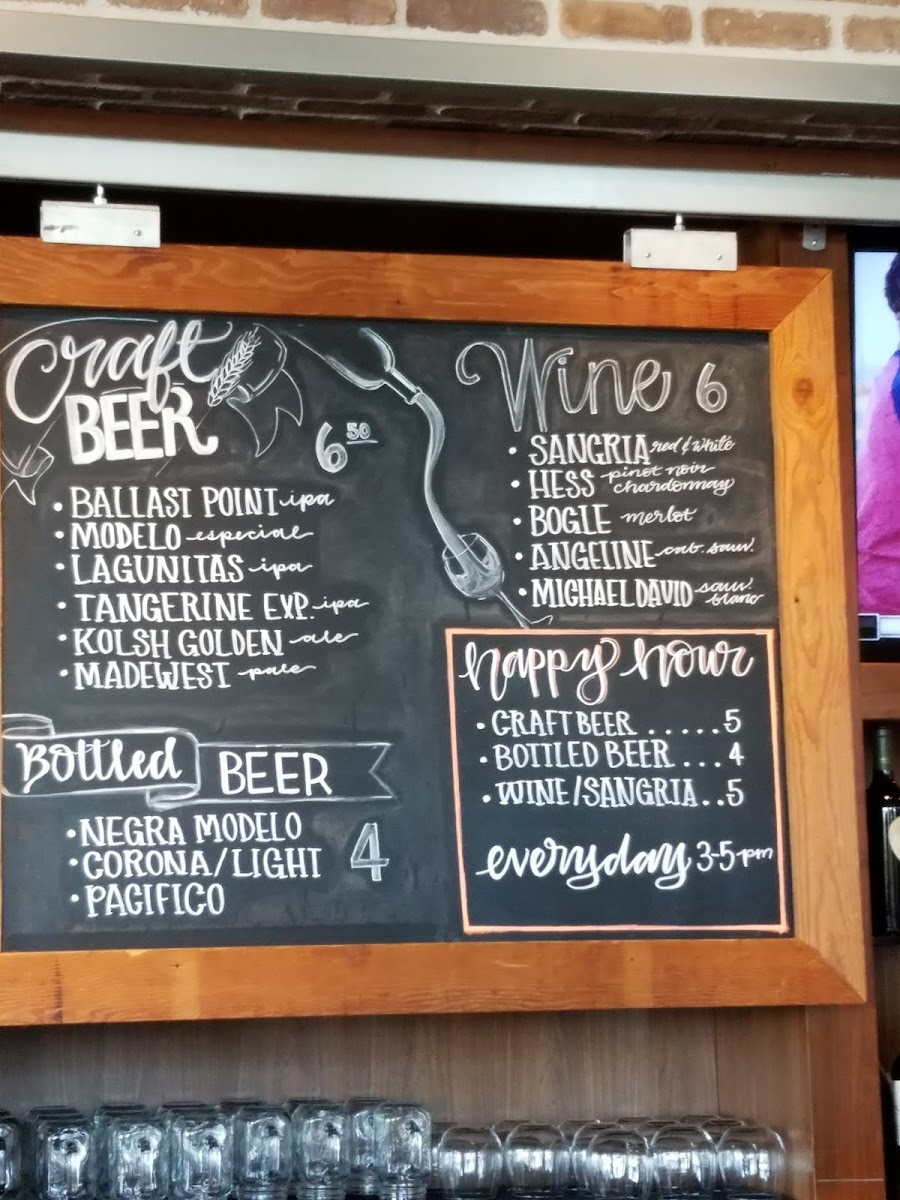 Craft
BEER
6 50
• BALLAST POINT ipa
• MODELO especial
• LAGUNITAS ipa
• TANGERINE EXP. ipa
• KOLSH GOLDEN ale
• MADEWEST pale
Bottled BEER
• NEGRA MODELO
• CORONA/LIGHT
• PACIFICO
4
Wine 6
• SANGRIA red & white
• HESS pinot noir
chardonnay
• BOGLE merlot
• ANGELINE cab. sauv.
• MICHAEL DAVID sauv.
blanc
happy hour
• CRAFT BEER ......5
• BOTTLED BEER ...4
• WINE/SANGRIA..5
everyday 3-5pm